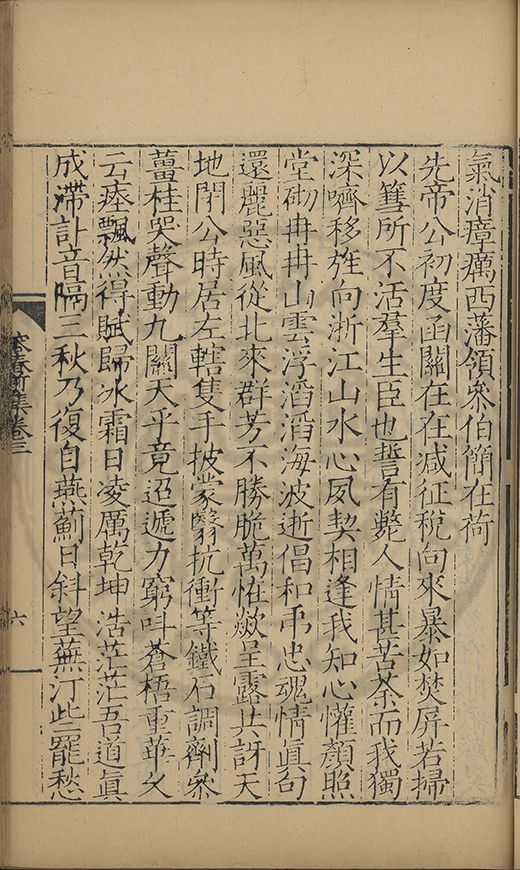 氣消瘴癘西藩領參伯簡在荷
先帝公初度函關在在減征稅向來暴如焚屏若掃
以篲所不活羣生臣也誓有斃人情甚苦荼而我獨
深嚌移旌向浙江山水心夙契相逢我知心懽顏照
堂砌冉冉山雲浮滔滔海波逝倡和弔忠魂情眞句
還麗惡風從北來群芳不勝脆萬怪歘呈露共訝天
地閉公時居左轄隻手披蒙翳抗衝等鐵石調劑參
薑桂哭聲動九關天乎竟迢遞力窮叫蒼梧重華乂
云瘞飄然得賦歸冰霜日凌厲乾坤浩茫茫吾道眞
成滯訃音隔三秋乃復自燕薊日斜望蕪汀些罷愁
集卷三
六